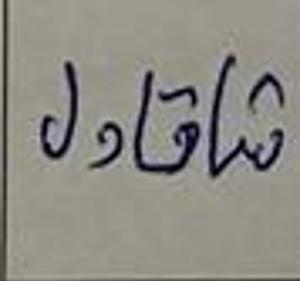 شاقاول